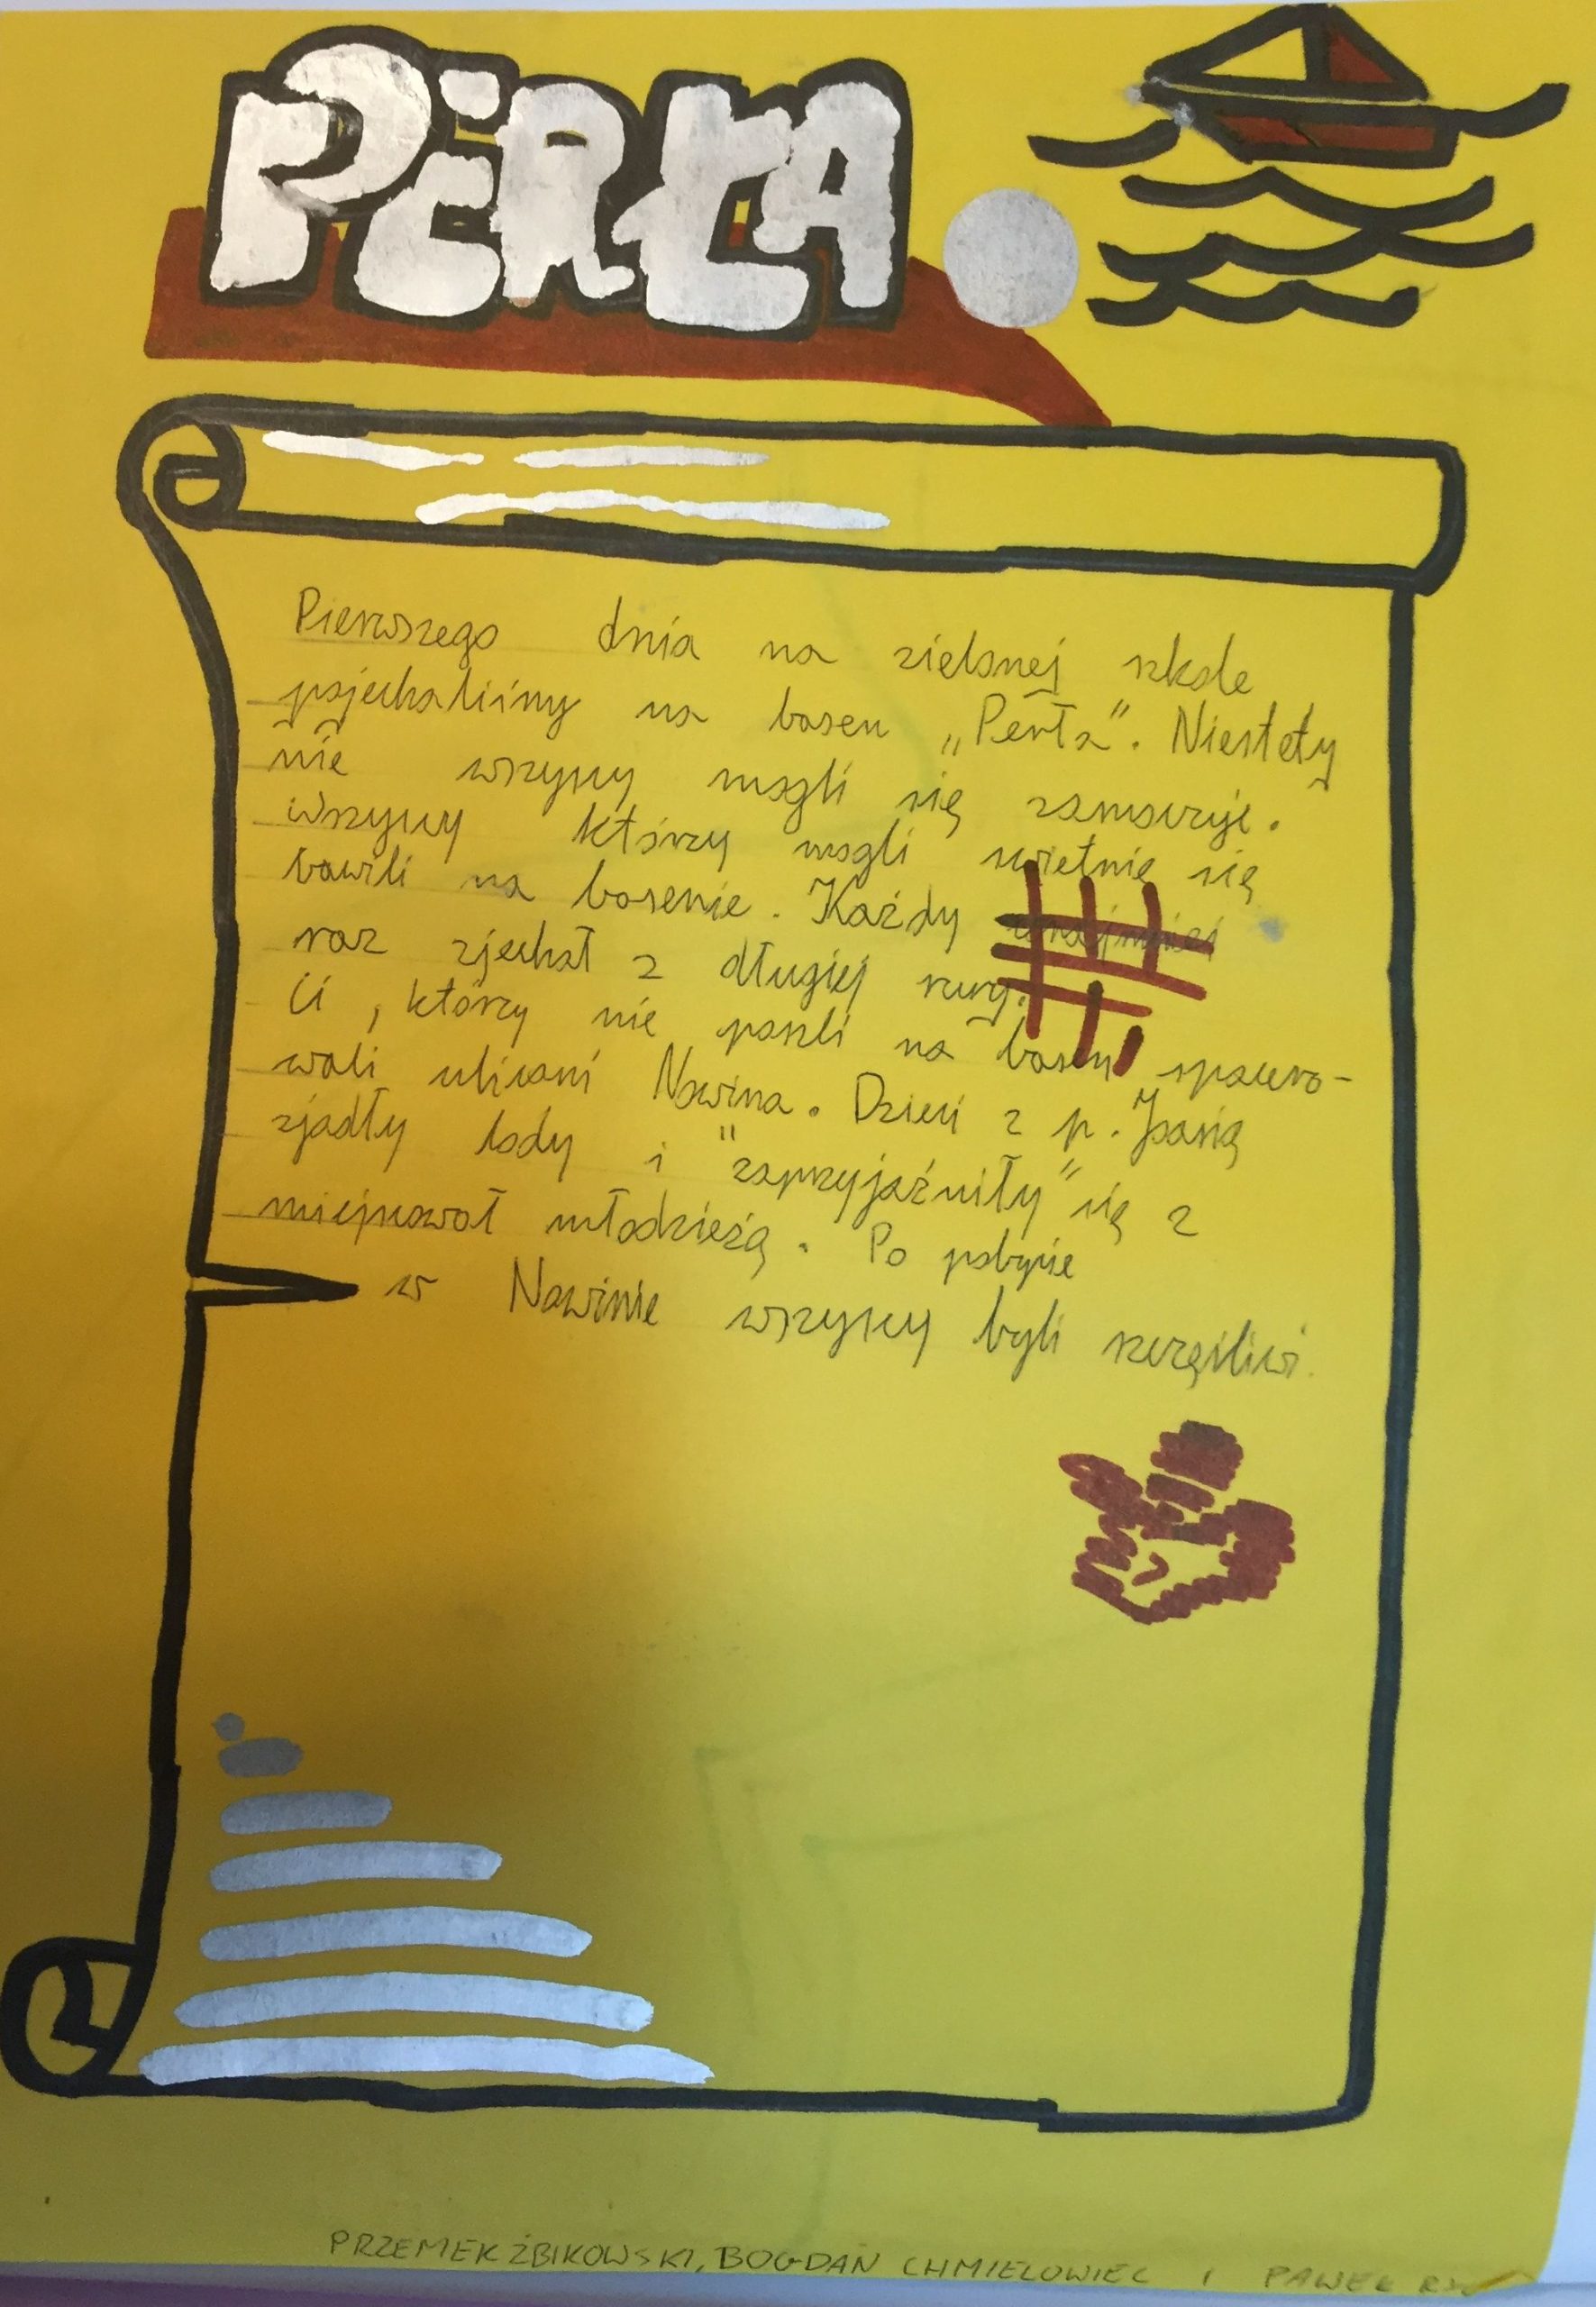 PERŁA
Pierwszego dnia na zielonej szkole
pojechaliśmy na basen „Perła". Niestety
nie wszyscy mogli się zamoczyć.
Wszyscy którzy mogli świetnie się
bawili na basenie. Każdy
raz zjechał z długiej rury.
Ci, którzy nie poszli na basen spacero-
wali ulicami Nowina. Dzieci z p. Joasią
zjadły lody i "zaprzyjaźniły" się z
miejscową młodzieżą. Po pobycie
w Nowinie wszyscy byli szczęśliwi.
PRZEMEK ŻBIKOWSKI, BOGDAN CHMIELOWIEC I PAWEŁ